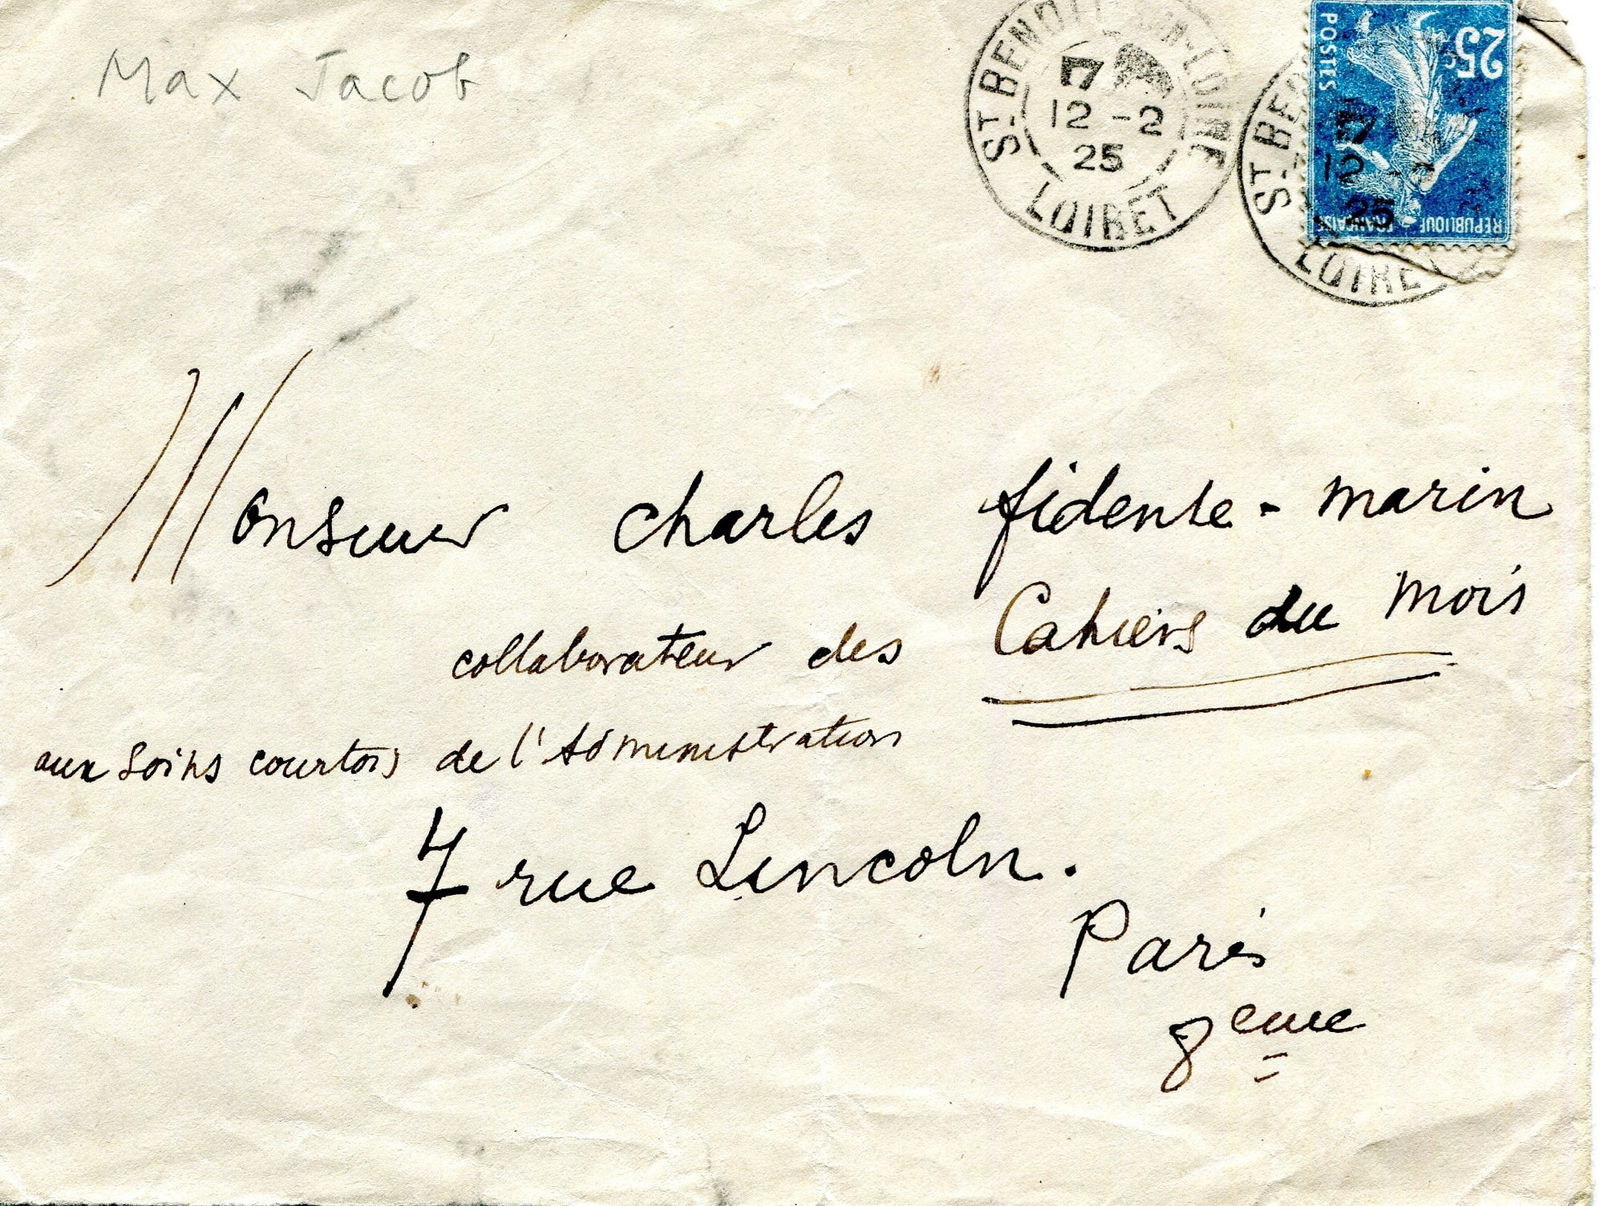 Max Jacob
ST BENOIT-SUR-LOIRE
7
12 -2
25
LOIRET
25c
POSTES
REPUBLIQUE FRANÇAISE
ST BEN
7
12 -2
25
LOIRET
Monsieur charles fidente-marin
collaborateur des Cahiers du Mois
aux soins courtois de l'Administration
7 rue Lincoln.
Paris
8eme